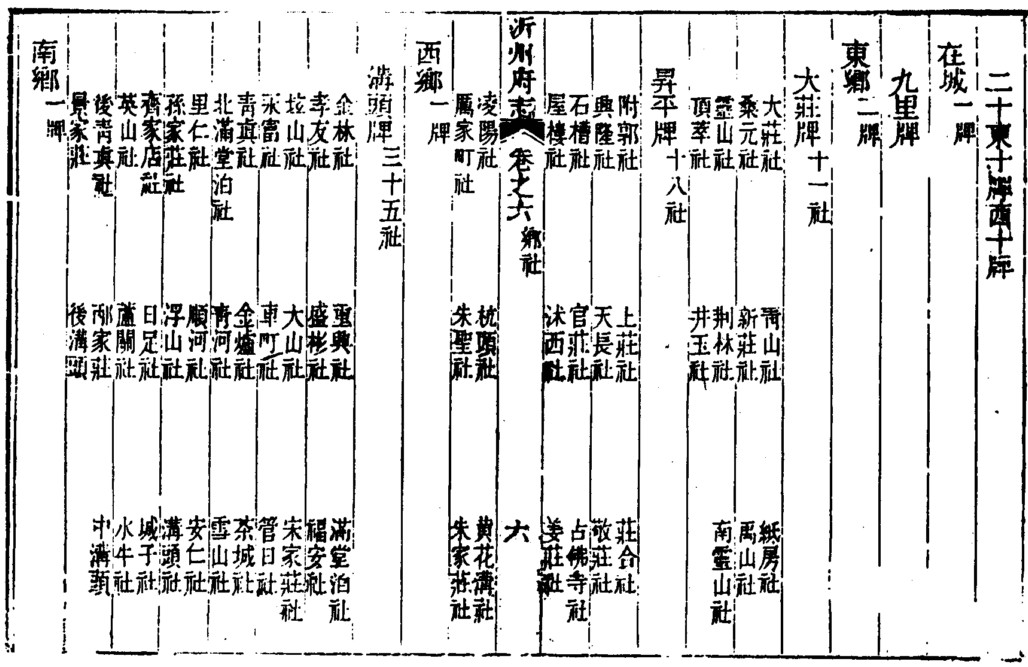 二十東十牌西十牌
在城一牌
九里牌
東鄉二牌
大莊牌十一社
大莊社 青山社 紙房社
桑元社 新莊社 禹山社
靈山社 荆林社 南靈山社
頂萃社 井玉社
昇平牌十八社
附郭社 上莊社 莊合社
興隆社 天長社 敬莊社
石槽社 官莊社 占佛寺社
屋樓社 沭西社 姜莊社
沂州府志 卷之六 鄉社 六
凌陽社 杭頭社 黄花溝社
厲家町社 朱聖社 朱家莊社
西鄉一牌
溝頭牌三十五社
金林社 重興社 滿堂泊社
孝友社 盛彬社 福安社
玆山社 大山社 宋家莊社
永富社 車町社 管日社
青真社 金爐社 茶城社
北滿堂泊社 青河社 雪山社
里仁社 順河社 安仁社
孫家莊社 浮山社 溝頭社
齊家店社 日足社 城子社
英山社 蘆關社 水牛社
後青真社 邴家莊 中溝頭
家莊 後溝頭
南鄉一牌